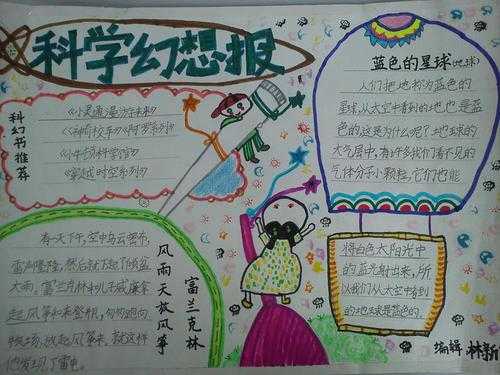 科学幻想报
科幻书推荐
《小灵通漫游未来》
《小牛顿科学馆》
《穿越时空系列》
蓝色的星球(地球)
人们把地球称为蓝色的
星球,从太空中看到的地球也是蓝
色的,这是为什么呢?地球的
大气层中,有许多我们看不见的
气体分子小颗粒,它们也能
将白色太阳光中
的蓝光射出来,所
以我们从太空中看到
的地球是蓝色的。
风雨天放风筝
富兰克林
有一天下午,空中乌云密布,
雷声隆隆,然后就下起了倾盆
大雨。富兰克林和儿子威廉拿
起风筝和莱登瓶,匆匆跑向
牧场,放起风筝来,就这样
他发现了雷电。
编辑 林新